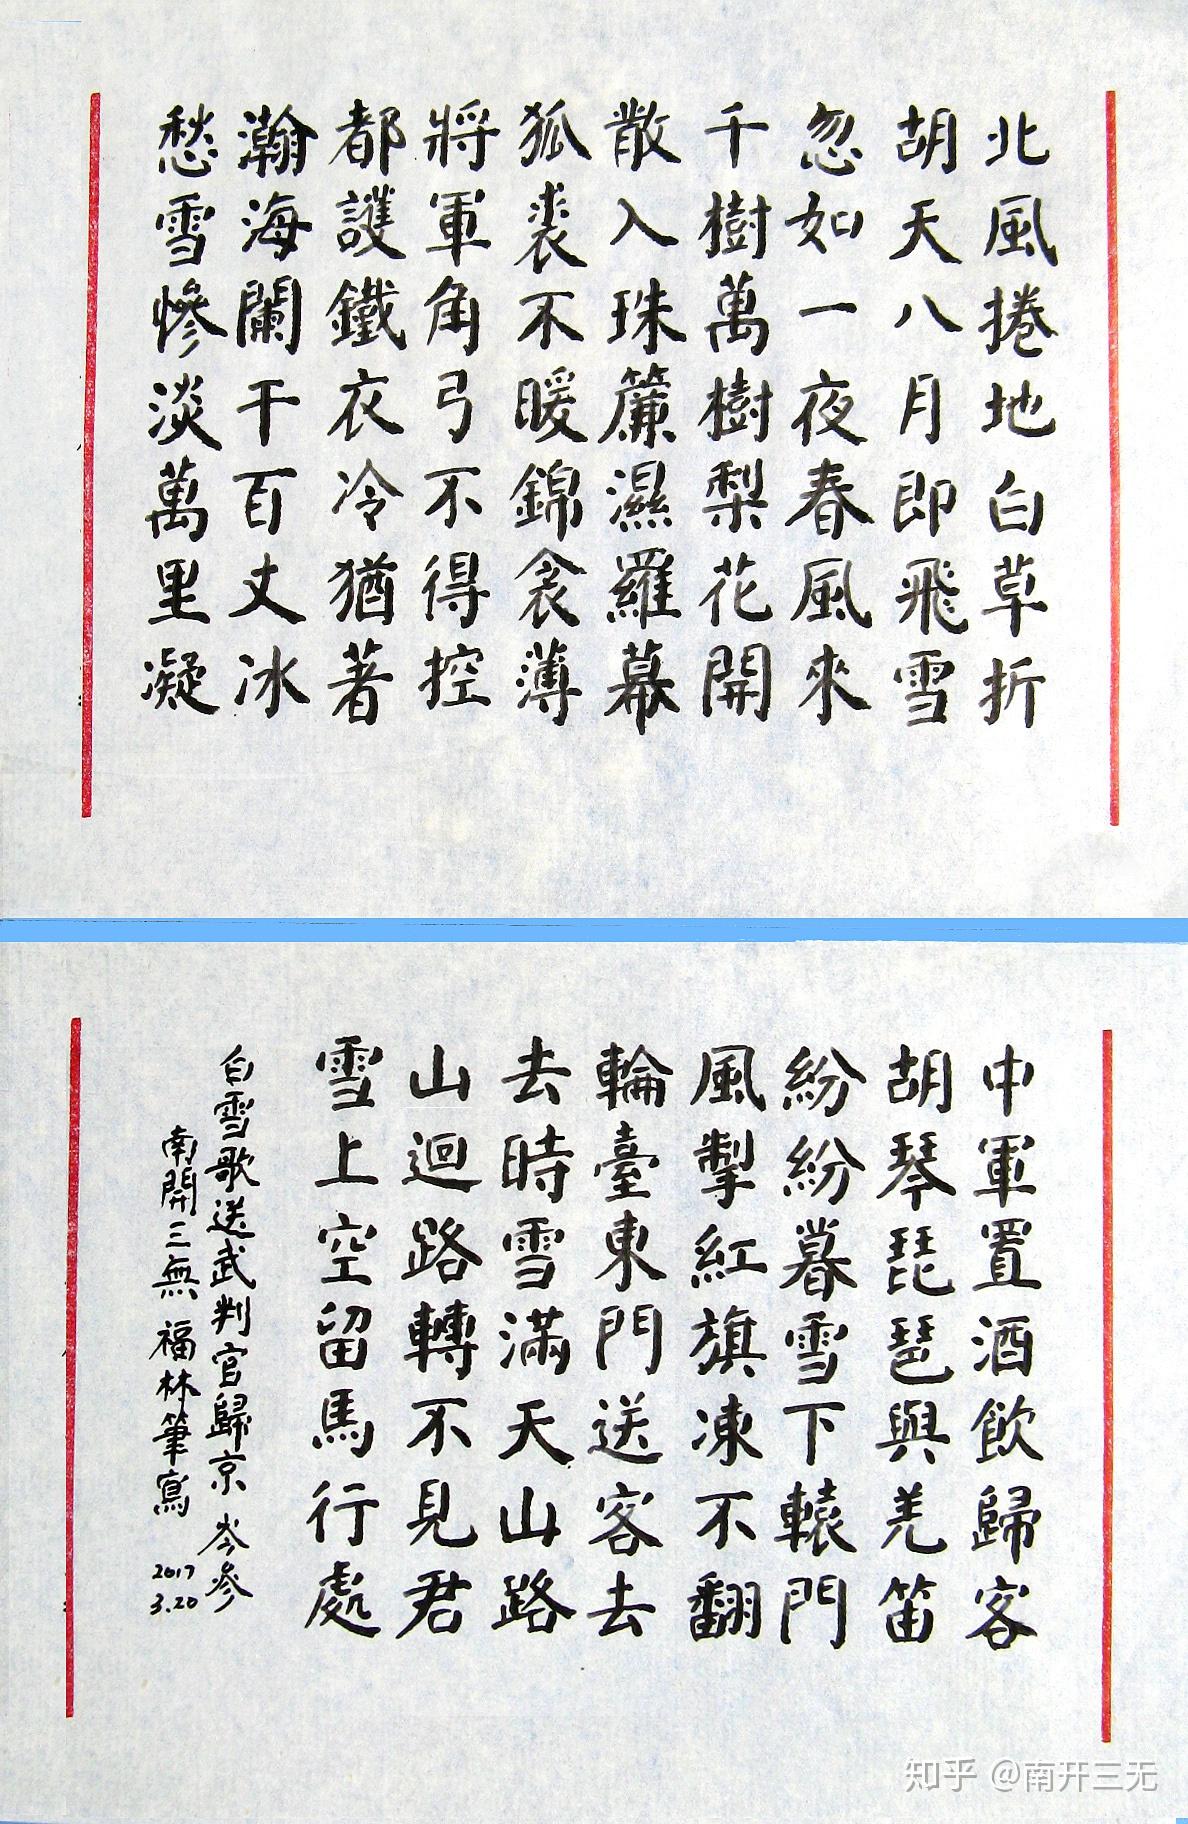 北風捲地白草折
胡天八月即飛雪
忽如一夜春風來
千樹萬樹梨花開
散入珠簾濕羅幕
狐裘不暖錦衾薄
將軍角弓不得控
都護鐵衣冷猶著
瀚海闌干百丈冰
愁雪慘淡萬里凝
中軍置酒飲歸客
胡琴琵琶與羌笛
紛紛暮雪下轅門
風掣紅旗凍不翻
輪臺東門送客去
去時雪滿天山路
山迴路轉不見君
雪上空留馬行處
白雪歌送武判官歸京 岑參
南開三無 福林筆寫 2017 3.20
知乎 @南开三无